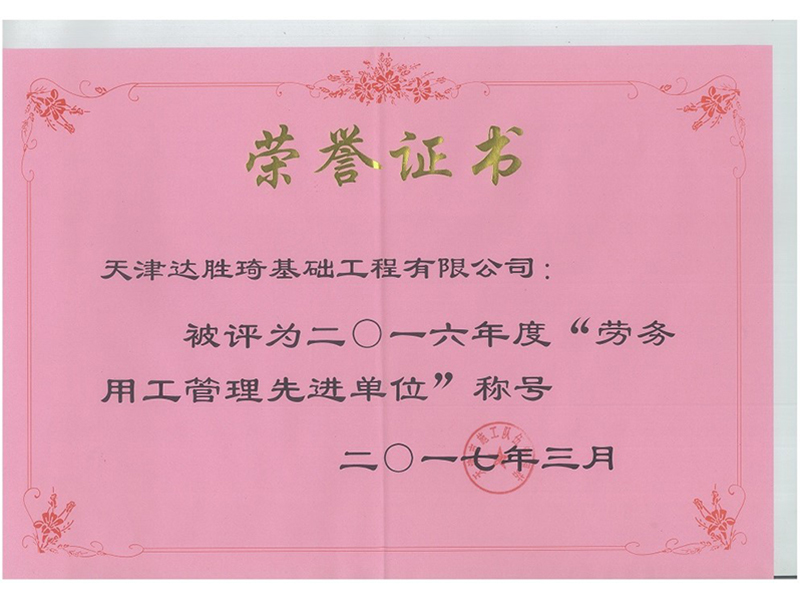 荣誉证书
天津达胜琦基础工程有限公司：
被评为二〇一六年度“劳务
用工管理先进单位”称号
二〇一七年三月